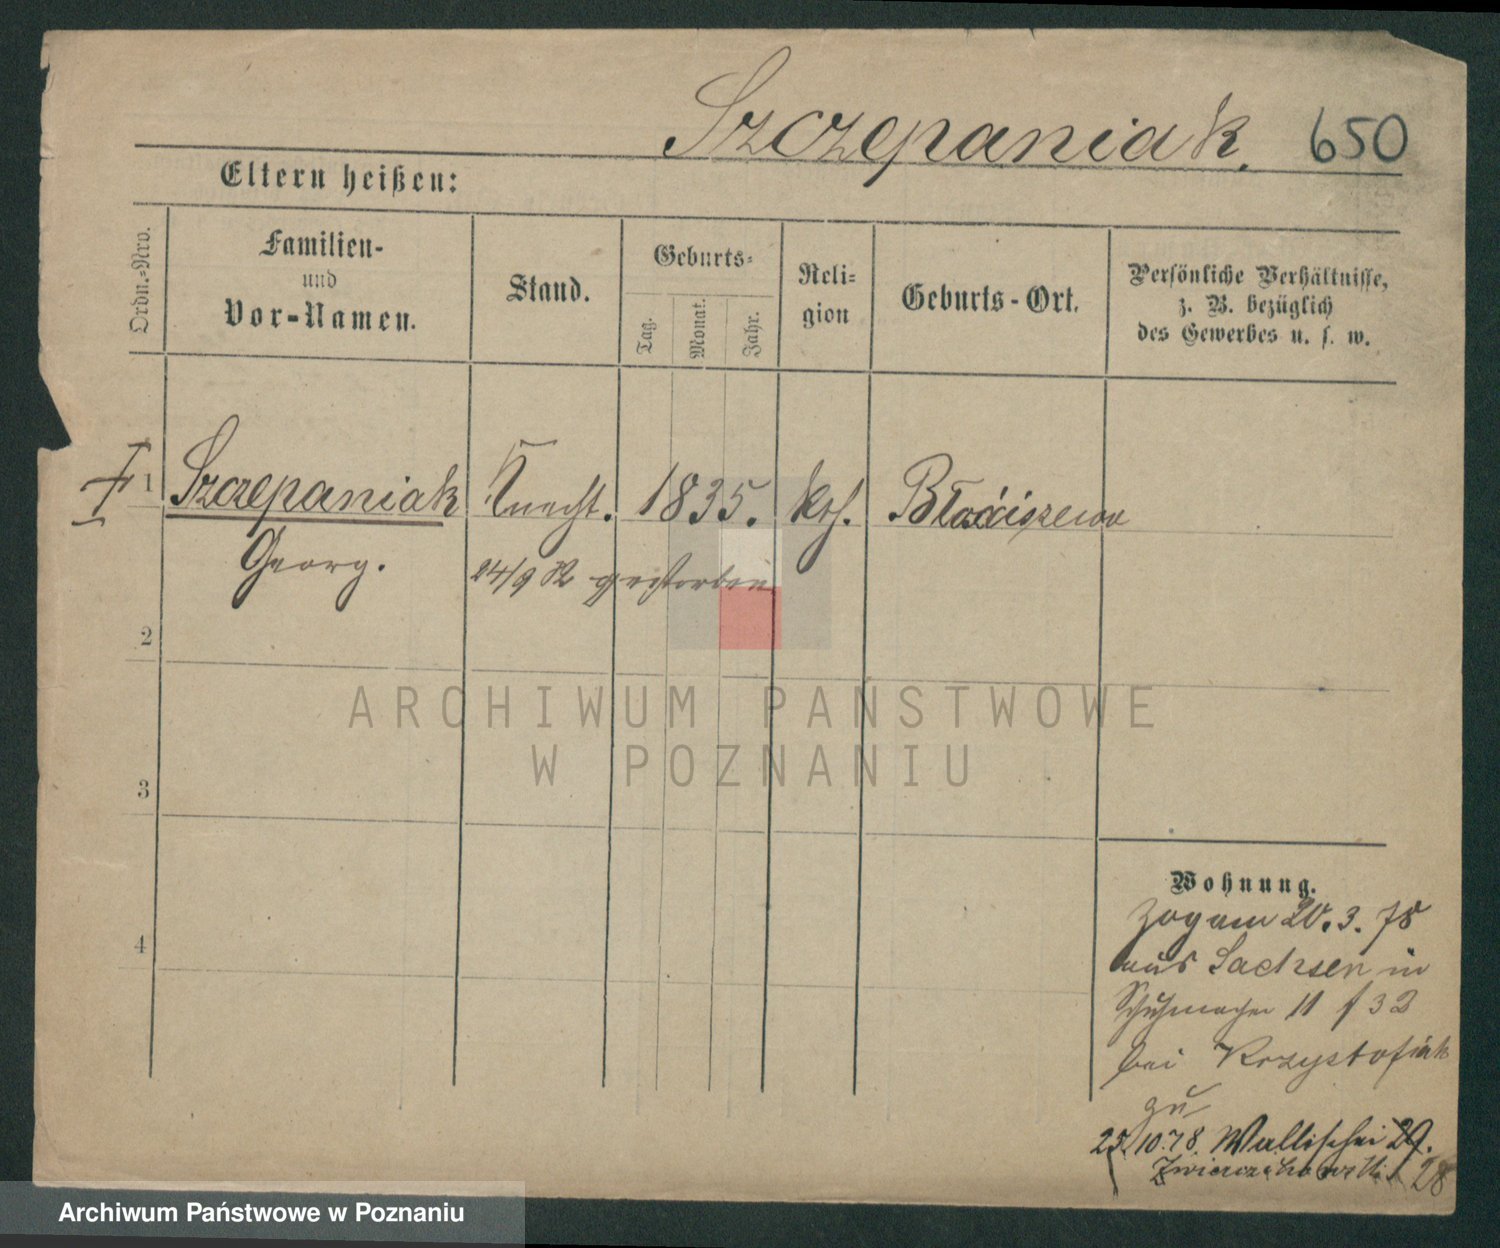 Szczepaniak. 650
Eltern heißen:
Ordn.=Nro.
Familien-
und
Vor-Namen.
Stand.
Geburts-
Tag.
Monat.
Jahr.
Reli-
gion
Geburts-Ort.
Persönliche Verhältnisse,
z. B. bezüglich
des Gewerbes u. s. w.
1 Szczepaniak Knecht. 1835. kth. Błociszewo
Georg. 24/9 82 gestorben
2
3
4
Wohnung.
zog am 20.3.78
aus Sachsen in
Schuhmacher 11 f 32
bei Krzystofiak
zu
25.10.78. Wallischei 29.
28
ARCHIWUM PAŃSTWOWE
W POZNANIU
Archiwum Państwowe w Poznaniu